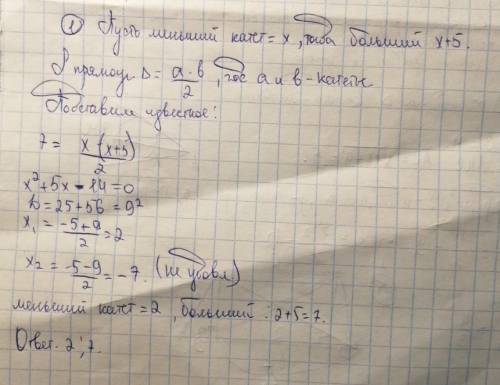 ① Пусть меньший катет = x, тогда больший x+5.
S прямоуг. Δ = a·b/2, где a и b - катеты
Подставим известное:
7 = x(x+5)/2
x²+5x-14=0
D=25+56=9²
x₁ = -5+9/2 = 2
x₂ = -5-9/2 = -7. (не удовл.)
меньший катет = 2, больший: 2+5=7.
Ответ: 2; 7.